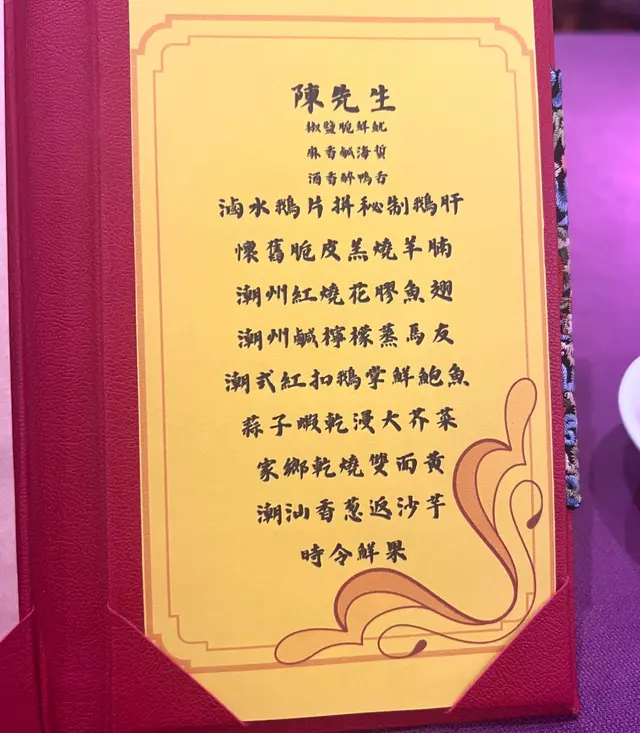 陳先生
椒鹽脆鮮魷
麻香鹹海蜇
酒香醉鴨舌
滷水鵝片拼秘制鵝肝
懷舊脆皮羔燒羊腩
潮州紅燒花膠魚翅
潮州鹹檸檬蒸馬友
潮式紅扣鵝掌鮮鮑魚
蒜子蝦乾浸大芥菜
家鄉乾燒雙面黄
潮汕香葱返沙芋
時令鮮果